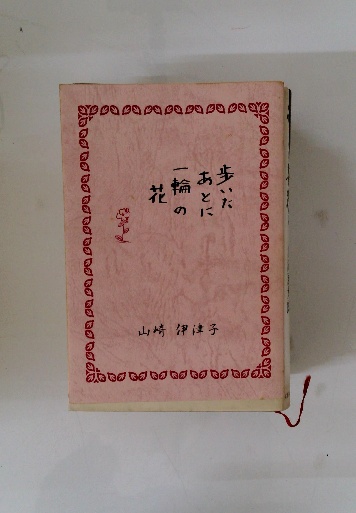 歩いた
あとに
一輪の
花
山崎 伊津子